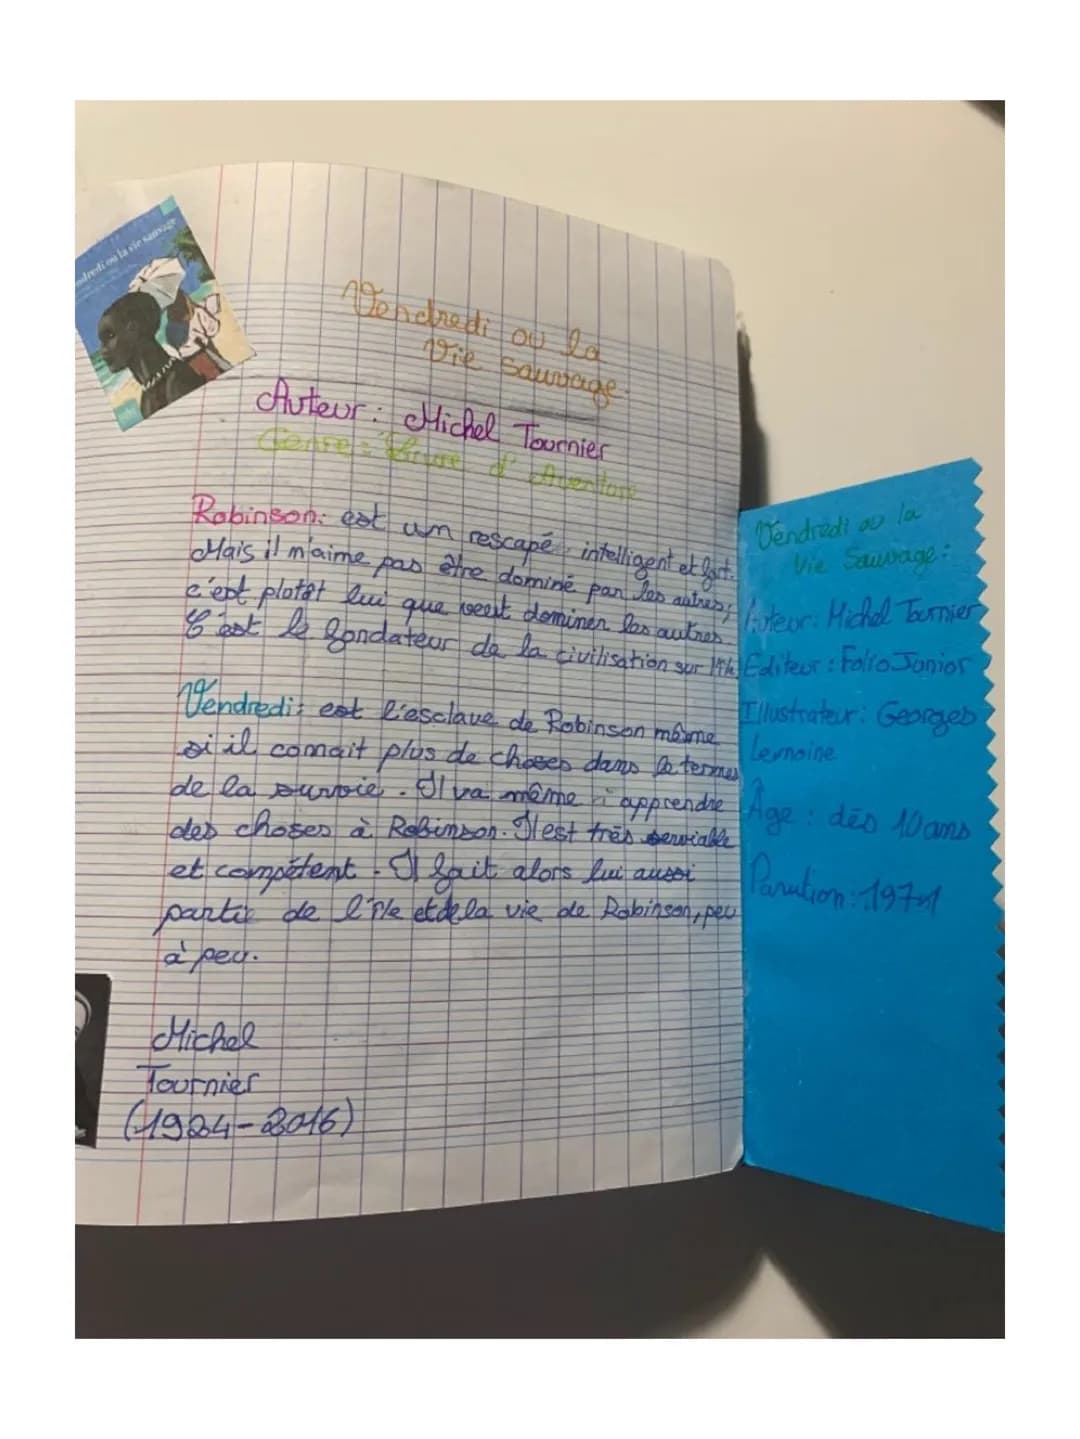 ndredi ou la vie sauvage
Vendredi ou la
Vie Sauvage.
Auteur: Michel Tournier
Genre: Livre d'Aventure
Robinson: est un rescapé intelligent et fort.
Mais il n'aime pas être dominé par les autres,
c'est plotôt lui que veut dominer les autres
C'est le fondateur de la civilisation sur l'île
Vendredi: est l'esclave de Robinson même
si il connait plus de choses dans le termes
de la survie. Il va même apprendre
des choses à Robinson. Il est très serviable
et compétent. Il fait alors lui aussi
partie de l'île et de la vie de Robinson, peu
à peu.
Michel
Tournier
(1924-2016)
Vendredi ou la
Vie Sauvage:
Auteur: Michel Tournier
Editeur: Folio Junior
Illustrateur: Georges
Lemoine
Âge: dès 10 ans
Parution: 1971